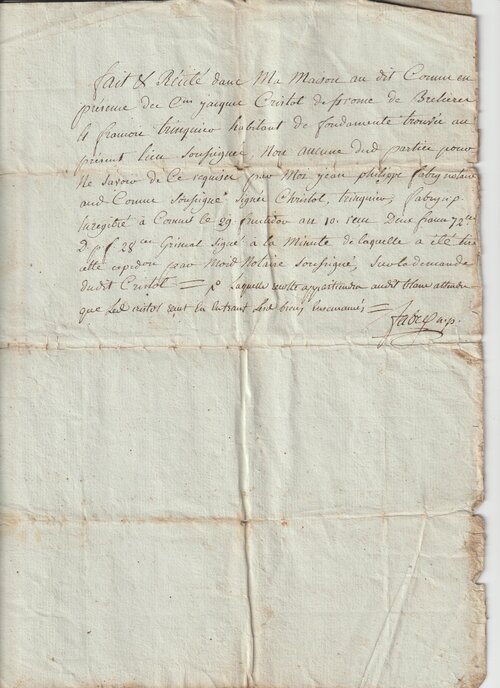 fait & Récité dans Ma Maison au dit Comus en
présence du Cen jacques Cristol de de Brelieres
& franсois trinquier habitant de trouvés au
présent lieu soussignés, Non aucune dud partie pour
Ne savoir de Ce requises par Moi jean philippe fabre notaire
aud Comus soussigné signés Christol, trinquier, fabre np
Enregistré à Comus le 29 fructidor an 10 reçu Deux francs 72 cen
28 cen signé à la Minute de laquelle a été tiré
cette expedion par Moid Notaire soussigné, sur la demande
dudit Cristol = laquelle recolte appartiendra audit blanc attendu
que Led cristol sont en entrant Led biens ensemancés =
fabre np.